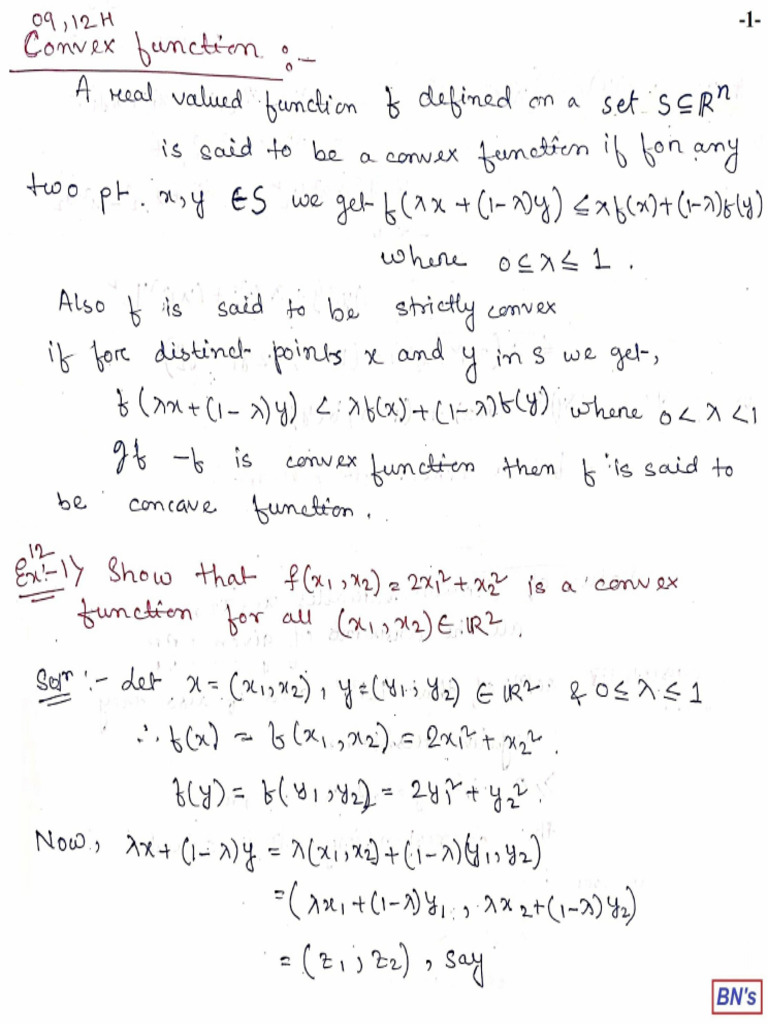 -1-
09,12H
Convex function :-
A real valued function f defined on a set S⊆ℝⁿ
is said to be a convex function if for any
two pt. x,y ∈S we get f(λx+(1-λ)y) ≤λf(x)+(1-λ)f(y)
where 0≤λ≤1.
Also f is said to be strictly convex
if fore distinct points x and y in S we get,
f(λx+(1-λ)y) < λf(x)+(1-λ)f(y) where 0<λ<1
If -f is convex function then f is said to
be concave function.
12
Ex:-1) Show that f(x₁,x₂)=2x₁²+x₂² is a convex
function for all (x₁,x₂)∈ℝ².
Solⁿ:- Let x=(x₁,x₂), y=(y₁,y₂) ∈ℝ² & 0≤λ≤1
∴ f(x) = f(x₁,x₂)=2x₁²+x₂².
f(y)= f(y₁,y₂)=2y₁²+y₂².
Now, λx+(1-λ)y = λ(x₁,x₂)+(1-λ)(y₁,y₂)
=(λx₁+(1-λ)y₁, λx₂+(1-λ)y₂)
=(z₁,z₂), say
BN's